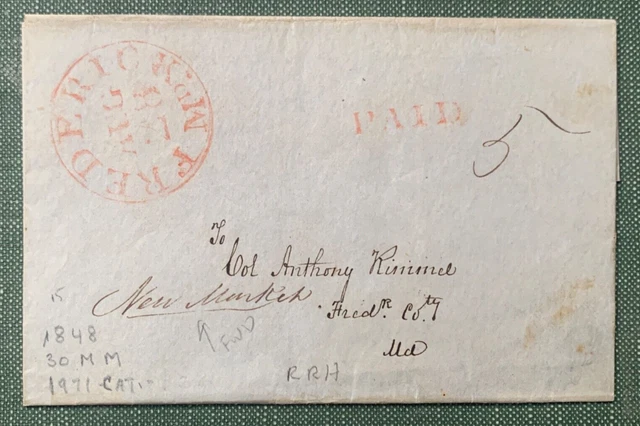 FREDERICK Md
PAID
5
To
Col Anthony Kimmel
New Market
Fredr. Coty
Md
15
1848
30 MM
1971 CAT.
FWD
RRH